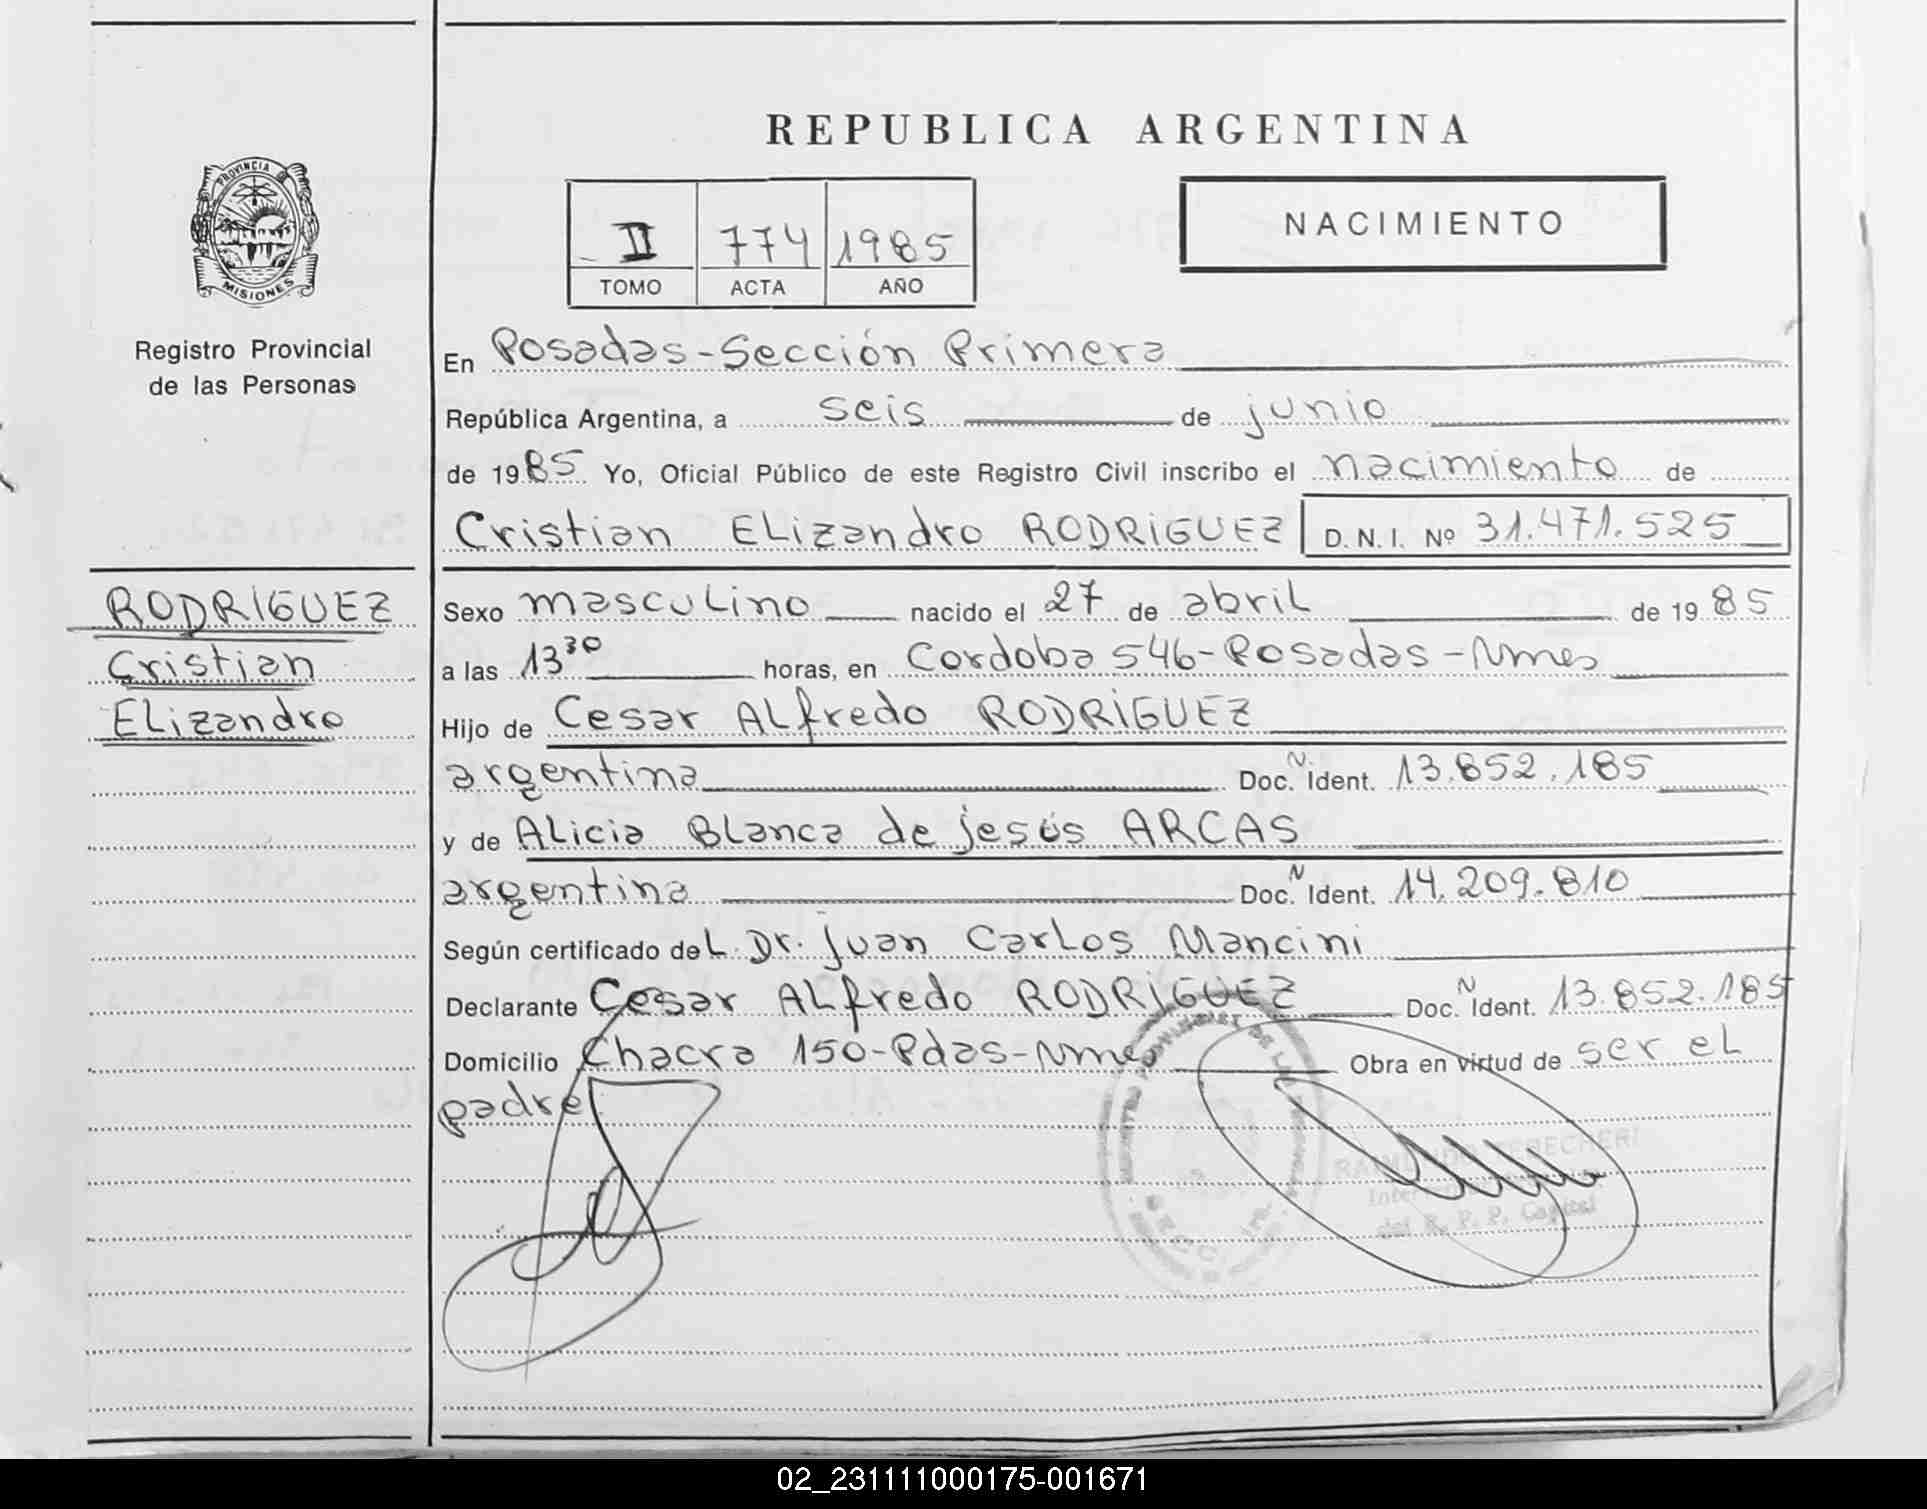 REPUBLICA ARGENTINA
PROVINCIA DE
MISIONES
Registro Provincial
de las Personas
II 774 1985
TOMO ACTA AÑO
NACIMIENTO
En Posadas-Sección Primera
República Argentina, a seis de junio
de 1985 Yo, Oficial Público de este Registro Civil inscribo el nacimiento de
Cristian Elizandro RODRIGUEZ D.N.I. Nº 31.471.525
RODRIGUEZ
Cristian
Elizandro
Sexo masculino nacido el 27 de abril de 1985
a las 13³⁰ horas, en Cordoba 546-Posadas-Nmes
Hijo de Cesar Alfredo RODRIGUEZ
argentina Doc. N Ident. 13.852.185
y de Alicia Blanca de jesús ARCAS
argentina Doc. N Ident. 14.209.810
Según certificado del Dr. Juan Carlos Mancini
Declarante Cesar Alfredo RODRIGUEZ Doc. N Ident. 13.852.185
Domicilio Chacra 150-Pdas-Nmes Obra en virtud de ser el
padre
del R. P. P. Capital
02_231111000175-001671